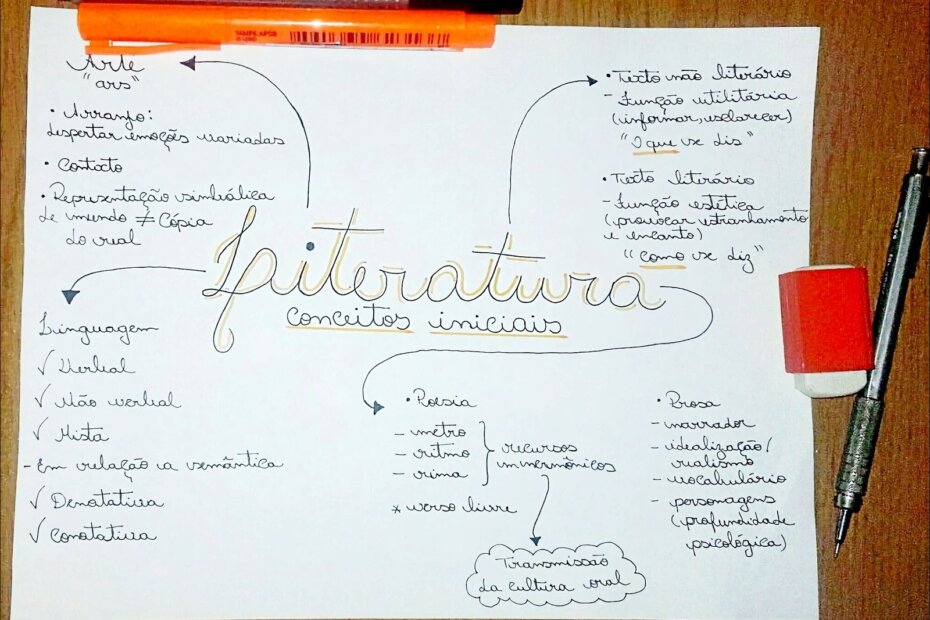 Arte
"ars"
• Arranjo:
despertar emoções variadas
• Contexto
• Representação simbólica
de mundo ≠ Cópia
do real
• Texto não literário
- Função utilitária
(informar, esclarecer)
"O que se diz"
• Texto literário
- Função estética
(provocar estranhamento
e encanto)
"como se diz"
Literatura
conceitos iniciais
Linguagem
✓ Verbal
✓ Não verbal
✓ Mista
- Em relação a semântica
✓ Denotativa
✓ Conotativa
• Poesia
- metro
- ritmo
- rima
recursos
mnemônicos
* verso livre
Transmissão
da cultura oral
• Prosa
- narrador
- idealização/
realismo
- vocabulário
- personagens
(profundidade
psicológica)